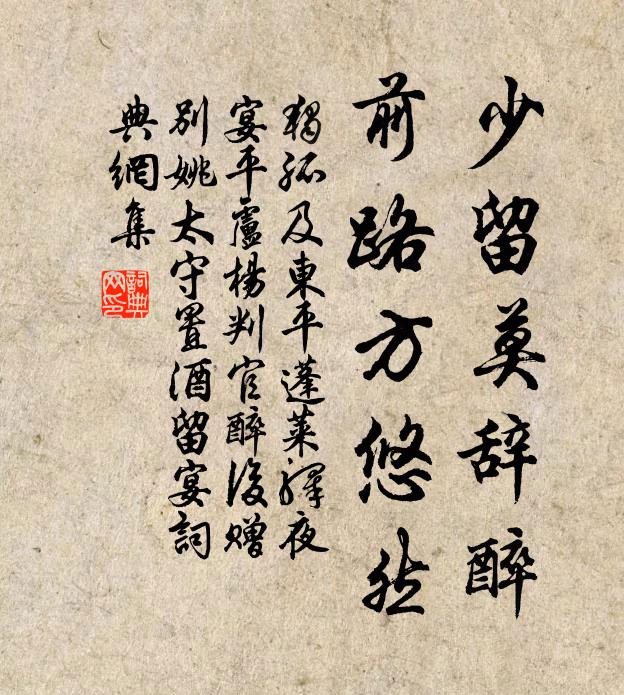 少留莫辞醉
前路方悠然
獨孤及東平蓬萊驛夜
宴平盧楊判官醉後贈
別姚太守置酒留宴詞
典網集
詞典
网印